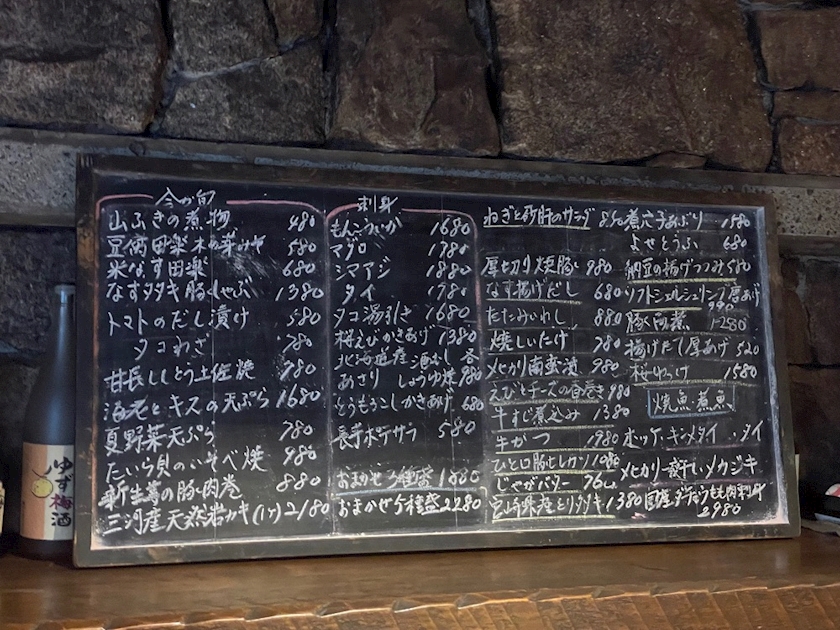 今が旬
山ふきの煮物 480
豆腐田楽 木の芽みそ 580
米なす田楽 680
なすタタキ豚しゃぶ 1380
トマトのだし漬け 580
タコわさ 780
甘長ししとう土佐焼 780
海老とキスの天ぷら 1680
夏野菜天ぷら 780
たいら貝のいそべ焼 980
新生姜の豚肉巻 880
三河産天然岩カキ(1ヶ) 2180
刺身
もんごういか 1680
マグロ 1780
シマアジ 1880
タイ 1780
タコ湯引き 1680
桜えびかきあげ 1380
北海道産 酒むし 各
あさり しょうゆ焼 980
とうもろこしかきあげ 680
長芋ポテサラ 580
おまかせ3種盛 1880
おまかせ5種盛 2280
ねぎと砂肝のサラダ 850
厚切り焼豚 980
なす揚げだし 680
たたみいわし 880
焼しいたけ 780
メヒカリ南蛮漬 980
えびとチーズの春巻き 980
牛すじ煮込み 1380
牛かつ 1980
ひと口豚ヒレカツ 1080
じゃがバター 760
宮崎県産とりタタキ 1380
煮穴子あぶり 1580
よせとうふ 680
納豆の揚げつつみ 580
ソフトシェルシュリンプ唐あげ
990
豚角煮 1280
揚げたて厚あげ 520
桜ゆっけ 1580
焼魚・煮魚
ホッケ・キンメダイ・タイ
メヒカリ一夜干し メカジキ
国産 もも肉刺身
2980
ゆず梅酒